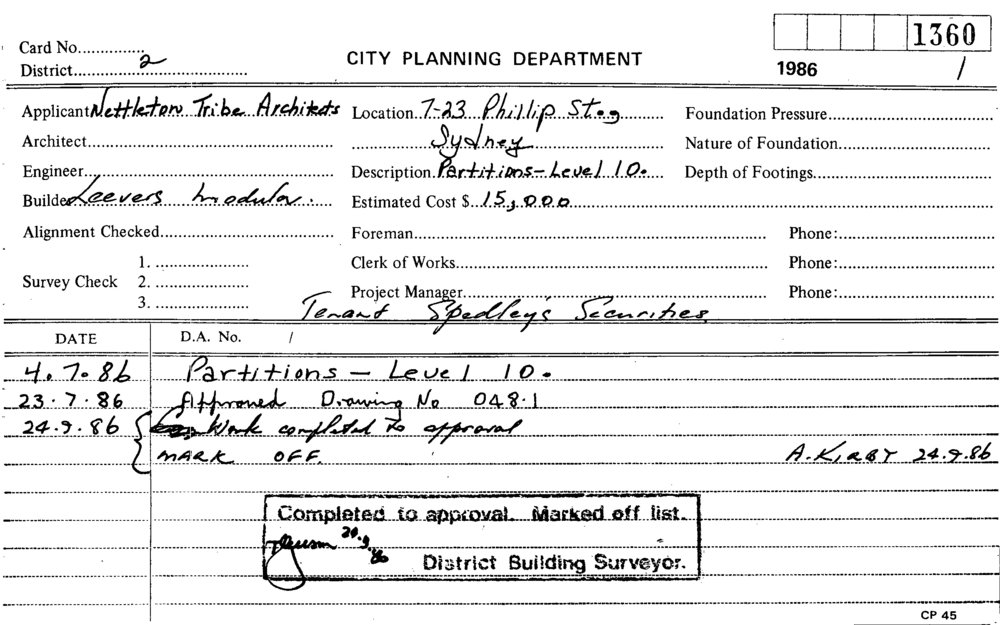 1360
Card No...............
District 2
CITY PLANNING DEPARTMENT
1986 /
Applicant Nettleton Tribe Architects
Location 7-23 Phillip St.,
Foundation Pressure
Architect
Sydney
Nature of Foundation
Engineer
Description Partitions - Level 10.
Depth of Footings
Builder Leevers Modular.
Estimated Cost $ 15,000
Alignment Checked
Foreman
Phone:
Survey Check
1.
2.
3.
Clerk of Works
Phone:
Project Manager
Phone:
Tenant Spedley's Securities
DATE D.A. No. /
4.7.86 Partitions - Level 10.
23.7.86 Approved Drawing No 048.1
24.9.86 Work completed to approval
MARK OFF. A. KIRBY 24.9.86
Completed to approval. Marked off list.
24.9.86
District Building Surveyor.
CP 45